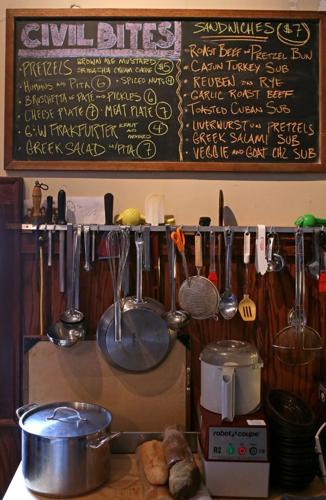 CIVIL BITES
PRETZELS BROWN ALE MUSTARD
SRIRACHA CREAM CHEESE $5
HUMMUS AND PITA 6 • SPICED NUTS 4
BRUSCHETTA OR PATE AND PICKLES 6
CHEESE PLATE 7 • MEAT PLATE 7
G:W FRAKFURTER KRAUT AND 4
GREEK SALAD W/PITA 7
SANDWICHES $7
ROAST BEEF ON PRETZEL BUN
CAJUN TURKEY SUB
REUBEN ON RYE
GARLIC ROAST BEEF
TOASTED CUBAN SUB
LIVERWURST ON PRETZELS
GREEK SALAMI SUB
VEGGIE AND GOAT CHZ SUB
robot coupe
R2